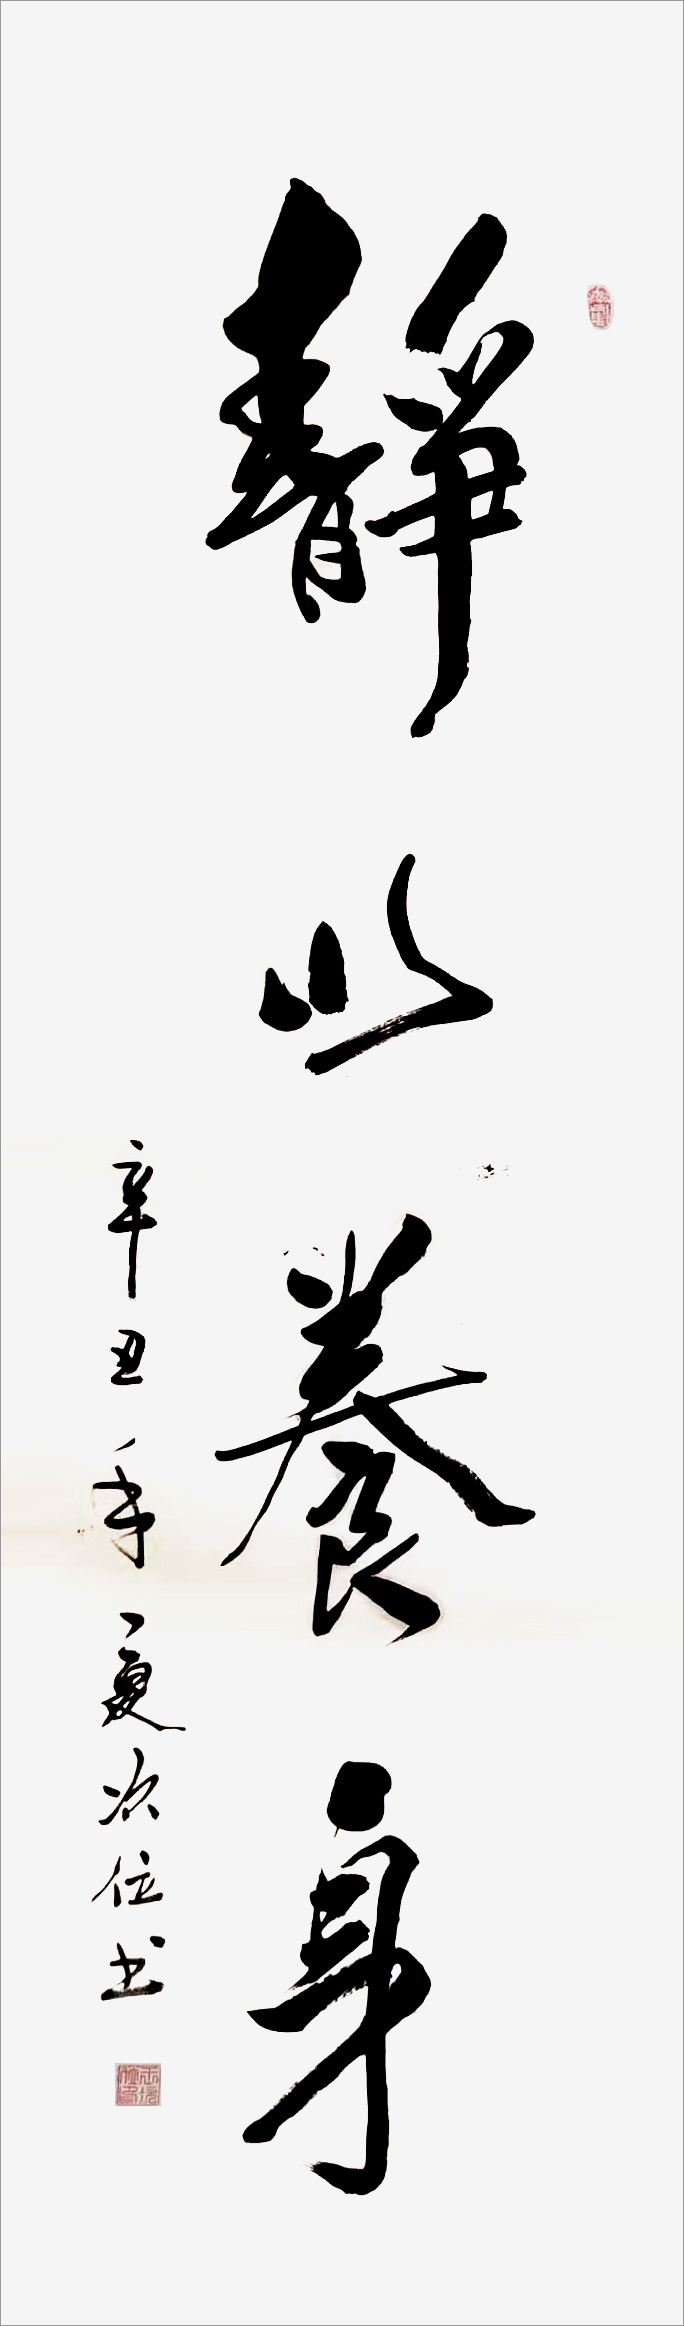 靜以養身
辛丑年夏次位书